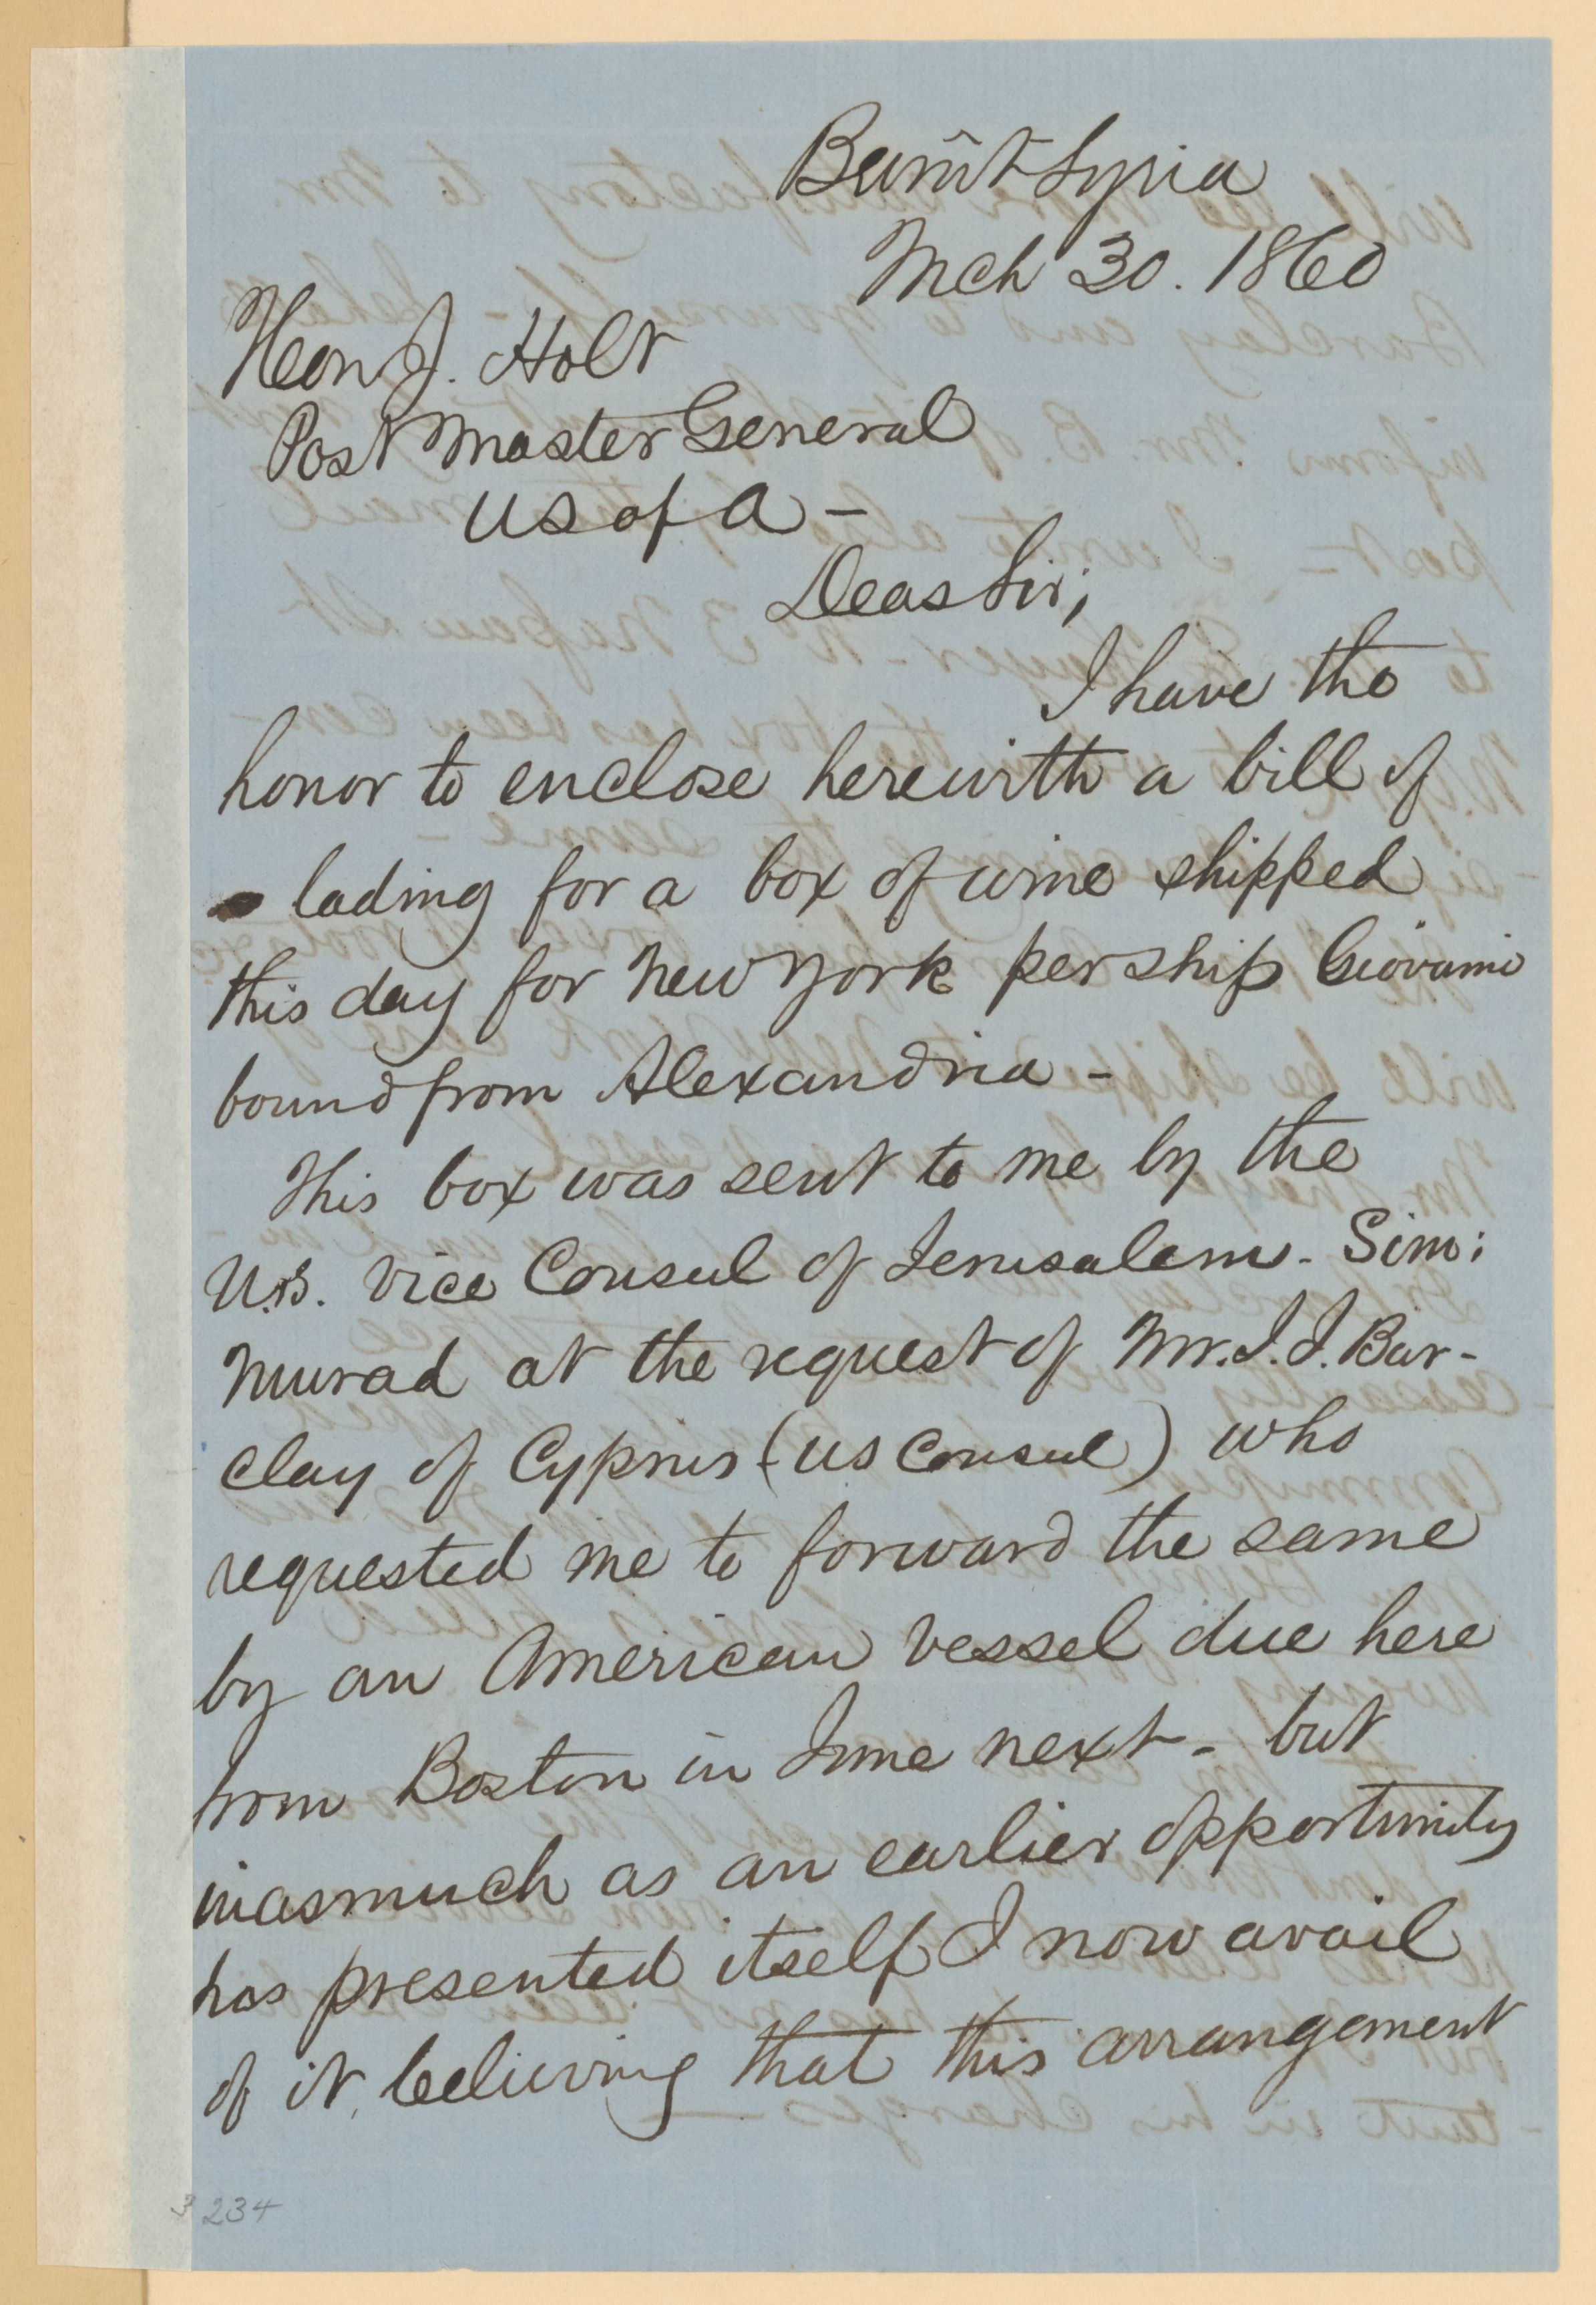 Beirût Syria
Mch 30. 1860
Hon J. Holt
Post Master General
US of A -
Dear Sir;
I have the
honor to enclose herewith a bill of
lading for a box of wine shipped
this day for New York per ship Giovanni
bound from Alexandria -
This box was sent to me by the
U.S. Vice Consul of Jerusalem. Sim:
Murad at the request of Mr. J. J. Bar-
clay of Cyprus (US Consul) who
requested me to forward the same
by an American vessel due here
from Boston in June next - but
inasmuch as an earlier opportunity
has presented itself I now avail
of it, believing that this arrangement
234